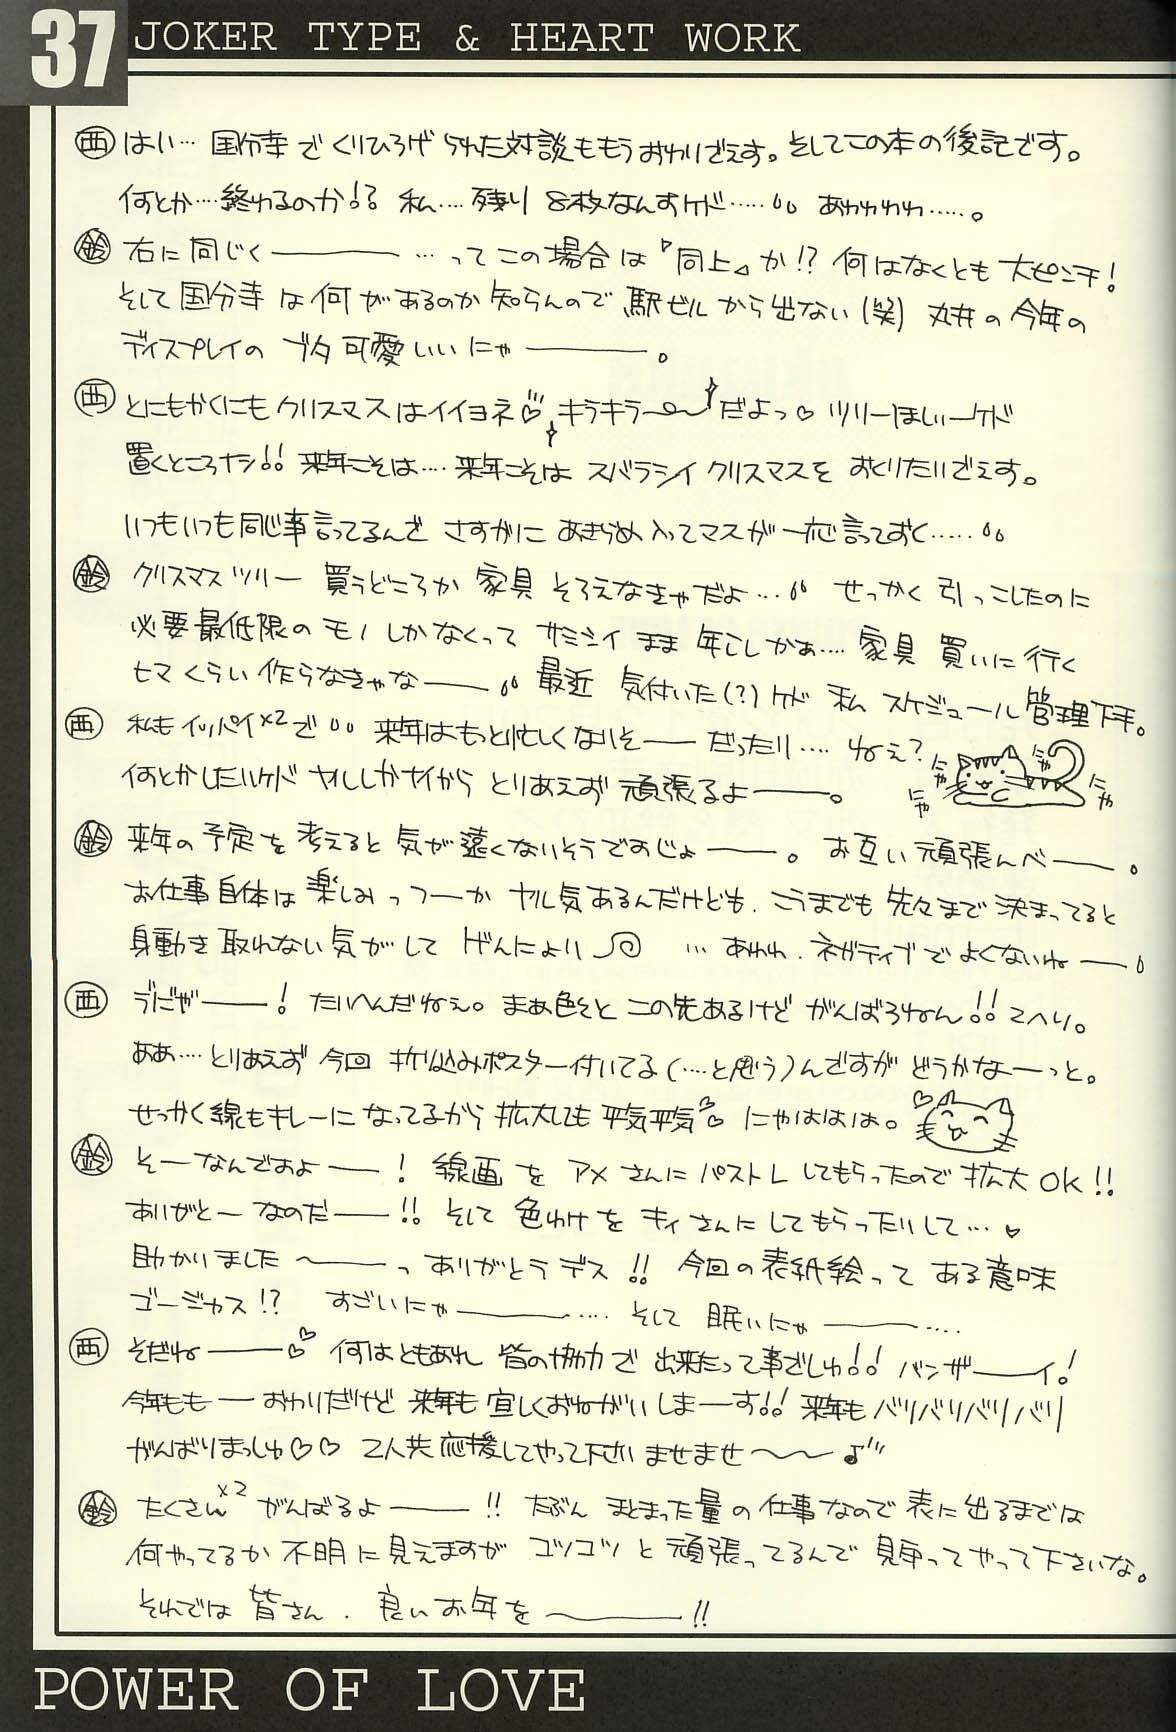 37 JOKER TYPE & HEART WORK
西 はい… 国分寺でくりひろげられた対談ももうおわりでえす。そしてこの本の後記です。
何とか…終わるのか!? 私…. 残り8枚なんすケド…… あわわわわ……。
鈴 右に同じく――― …ってこの場合は『同上』か!? 何はなくとも大ピンチ!
そして国分寺は何があるのか知らんので駅ビルから出ない(笑) 丸井の今年の
ディスプレイのブタ可愛いいにゃ―――。
西 とにもかくにもクリスマスはイイヨネ♡ キラキラ〜だよっ♡ ツリーほしいーケド
置くところナシ!! 来年こそは…. 来年こそはスバラシイクリスマスをおくりたいでえす。
いつもいつも同じ事言ってるんでさすがにあきらめ入ってマスが一応言っておく……
鈴 クリスマスツリー買うどころか家具そろえなきゃだよ… せっかく引っこしたのに
必要最低限のモノしかなくってサミシイまま年こしかぁ…. 家具買いに行く
ヒマくらい作らなきゃな―― 最近気付いた(?)ケド私スケジュール管理下手。
西 私もイッパイ×2で 来年はもっと忙しくなりそ――だったり…. ねぇ?
何とかしたいケドヤルしかナイからとりあえず頑張るよ――。
にゃ にゃ にゃ にゃ
鈴 来年の予定を考えると気が遠くないそうですのじょ――。お互い頑張んべ――。
お仕事自体は楽しみっつーかヤル気あるんだけども、こうまでも先々まで決まってると
身動き取れない気がしてげんにょり …あわわ、ネガティブでよくないね――
西 うにゃ――! たいへんだねぇ。まぁ色々とこの先あるけどがんばろねん!! てへり。
ああ…. とりあえず今回折り込みポスター付いてる(…と思う)んですがどうかなーっと。
せっかく線もキレーになってるから拡大しても平気平気♡ にゃははは。
鈴 そーなんですよ――! 線画をアメさんにパストレしてもらったので拡大OK!!
ありがとーなのだ――!! そして色わけをキィさんにしてもらったりして…♡
助かりました〜――っありがとうデス!! 今回の表紙絵ってある意味
ゴージャス!? すごいにゃ―――…. そして眠いにゃ―――….
西 そだね――♡ 何はともあれ皆の協力で出来たって事でしゅ!! バンザ――イ!
今年もも――おわりだけど来年も宜しくおねがいしま―す!! 来年もバリバリバリバリ
がんばりまっしゅ♡♡ 2人共応援してやって下さいませませ〜〜♪
鈴 たくさん×2がんばるよ――!! たぶんまとまった量の仕事なので表に出るまでは
何やってるか不明に見えますがコツコツと頑張ってるんで見守ってやって下さいな。
それでは皆さん、良いお年を〜―――!!
POWER OF LOVE